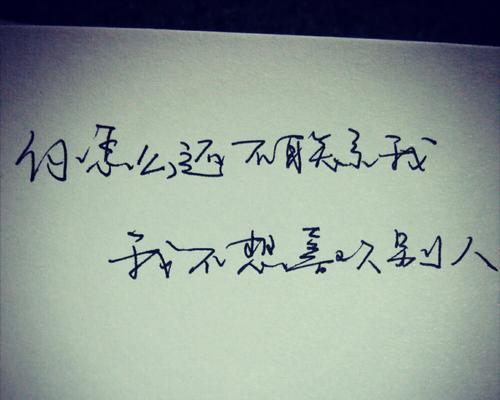 你怎么还不联系我
我不想喜欢别人